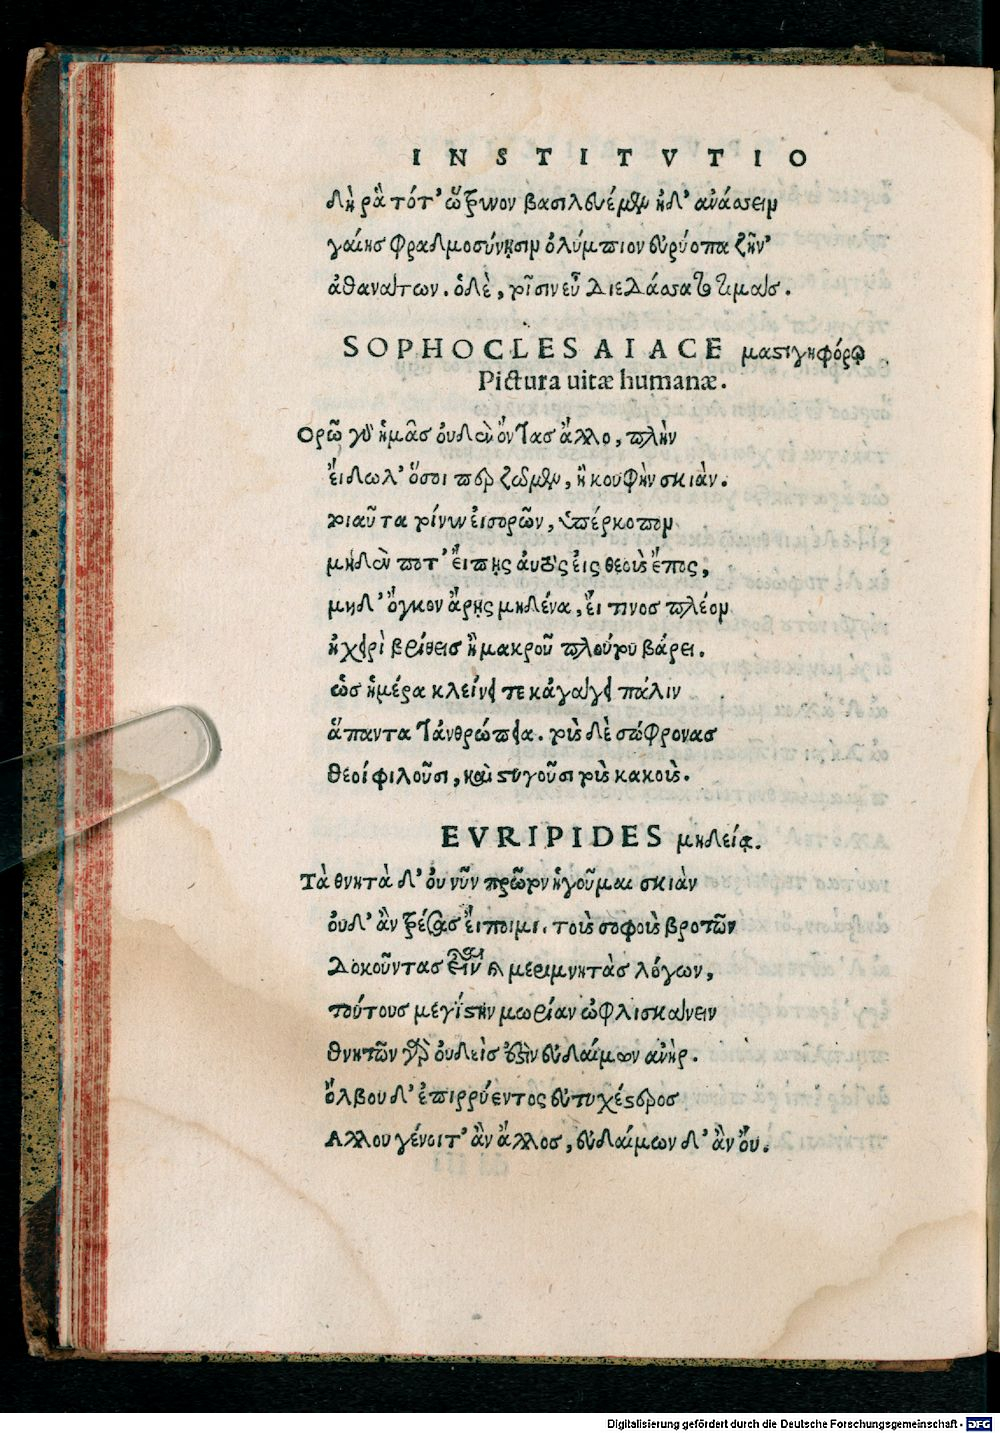 INSTITVTIO
δὴ ῥὰ τότ' ὤτρυνον βασιλευέμεν ἠδ' ἀνάσσειν
γαίης φραδμοσύνῃσιν ὀλύμπιον εὐρύοπα ζῆν'
ἀθανάτων. ὁδὲ, τοῖσιν εὖ διεδάσσατο τιμάς.
SOPHOCLES AIACE μαστιγηφόρῳ
Pictura uitæ humanæ.
Ορῶ γὸ ἡμᾶς οὐδὲν ὄντας ἄλλο, πλὴν
ἔιδωλ' ὅσοι περ ζῶμεν, ἢ κουφὴν σκιὰν.
τοιαῦτα τοίνυν ἐισορῶν, ὑπέρκοπον
μηδὲν ποτ' ἔιπῃς ἀυτὸς ἐις θεοὺς ἔπος,
μηδ' ὄγκον ἄρῃς μηδένα, ἔι τινος πλέον
ἢ χειρὶ βρίθεις ἢ μακροῦ πλούτου βάρει.
ὡς ἡμέρα κλείνει τε κἀγάγει πάλιν
ἅπαντα τἀνθρώπεια. τοὺς δὲ σώφρονας
θεοί φιλοῦσι, καὶ στυγοῦσι τοὺς κακοὺς.
EVRIPIDES μηδείᾳ.
Τὰ θνητὰ δ' ὀυ νῦν πρῶτον ἡγοῦμαι σκιὰν
ὀυδ' ἂν τρέσας ἔιποιμι. τοὺς σοφοὺς βροτῶν
δοκοῦντας εἶναι καὶ μεριμνητὰς λόγων,
τούτους μεγίστην μωρίαν ὠφλισκάνειν
θνητῶν γὰρ ὀυδεὶς ἐστὶν ἐυδαίμων ἀνὴρ.
ὄλβου δ' ἐπιρρύεντος ἐυτυχέστερος
Αλλου γένοιτ' ἂν ἄλλος, ἐυδαίμων δ' ἂν ὄυ.
Digitalisierung gefördert durch die Deutsche Forschungsgemeinschaft - DFG